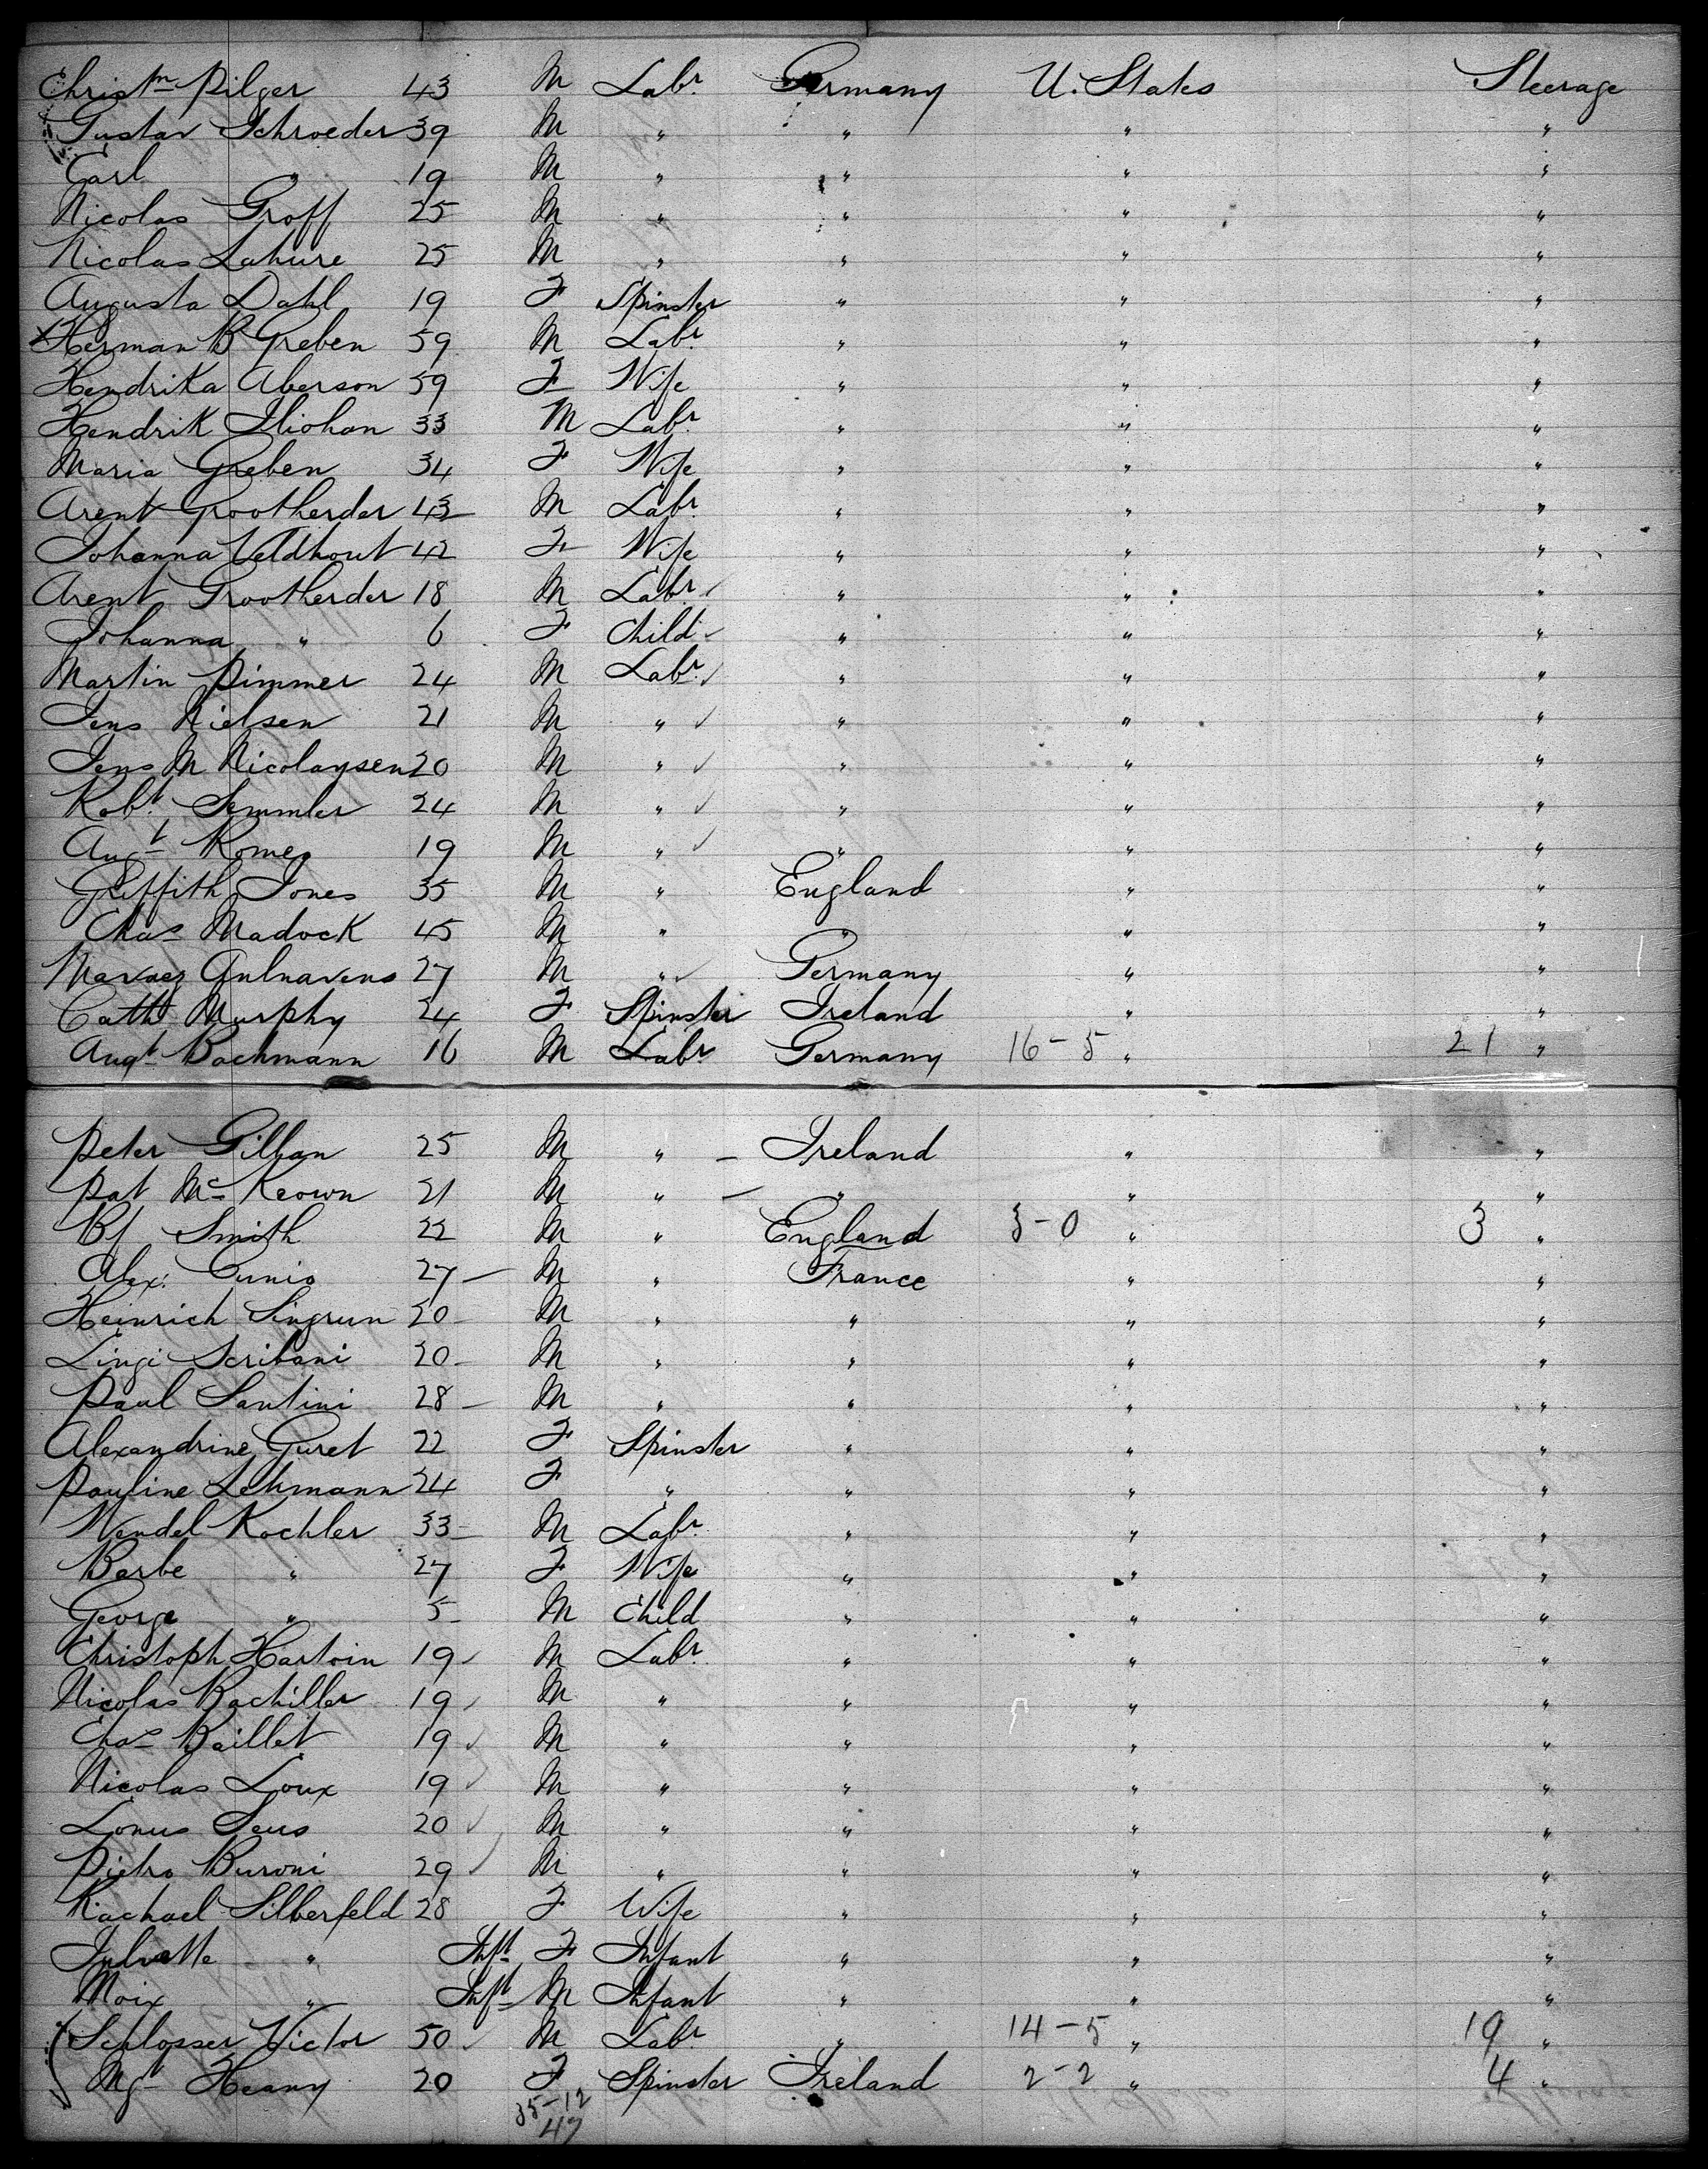 Christn Pilger 43 M Labr Germany U. States Steerage
Gustav Schroeder 39 M " " " "
Carl " 19 M " " " "
Nicolas Groff 25 M " " " "
Nicolas Lahure 25 M " " " "
Augusta Dahl 19 F Spinster " " "
x Herman B Greben 59 M Labr " " "
Hendrika Aberson 59 F Wife " " "
Hendrik 33 M Labr " " "
Maria Greben 34 F Wife " " "
Arent Grootherder 43 M Labr " " "
Johanna Veldhout 42 F Wife " " "
Arent Grootherder 18 M Labr " " "
Johanna " 6 F Child " " "
Martin Pimmer 24 M Labr " " "
Jens Nielsen 21 M " " " "
Jens M Nicolaysen 20 M " " " "
Robt Semmler 24 M " " " "
Augt Romeg 19 M " " " "
Griffith Jones 35 M " England " "
Chas Madock 45 M " " " "
27 M " Germany " "
Cathe Murphy 24 F Spinster Ireland " "
Augt Bachmann 16 M Labr Germany 16-5 " 21 "
Peter Gillan 25 M " Ireland " "
Pat McKeown 21 M " " " "
Bj Smith 22 M " England 3-0 " 3 "
Alex. Cunio 27 M " France " "
Heinrich Singrun 20 M " " " "
Lingi Scribani 20 M " " " "
Paul Santini 28 M " " " "
Alexandrine Guret 22 F Spinster " " "
Pauline Lehmann 24 F " " " "
Wendel Kochler 33 M Labr " " "
Barbe " 27 F Wife " " "
George " 5 M Child " " "
Christoph Hartoin 19 M Labr " " "
Nicolas Bachiller 19 M " " " "
Chas Baillet 19 M " " " "
Nicolas Loux 19 M " " " "
20 M " " " "
Pietro Buroni 29 M " " " "
Rachael Silberfeld 28 F Wife " " "
Julvette " Inft F Infant " " "
Moix " Inft M Infant " " "
Schlosser Victor 50 M Labr " 14-5 " 19 "
Mgt Heany 20 F Spinster Ireland 2-2 " 4 "
35-12
47